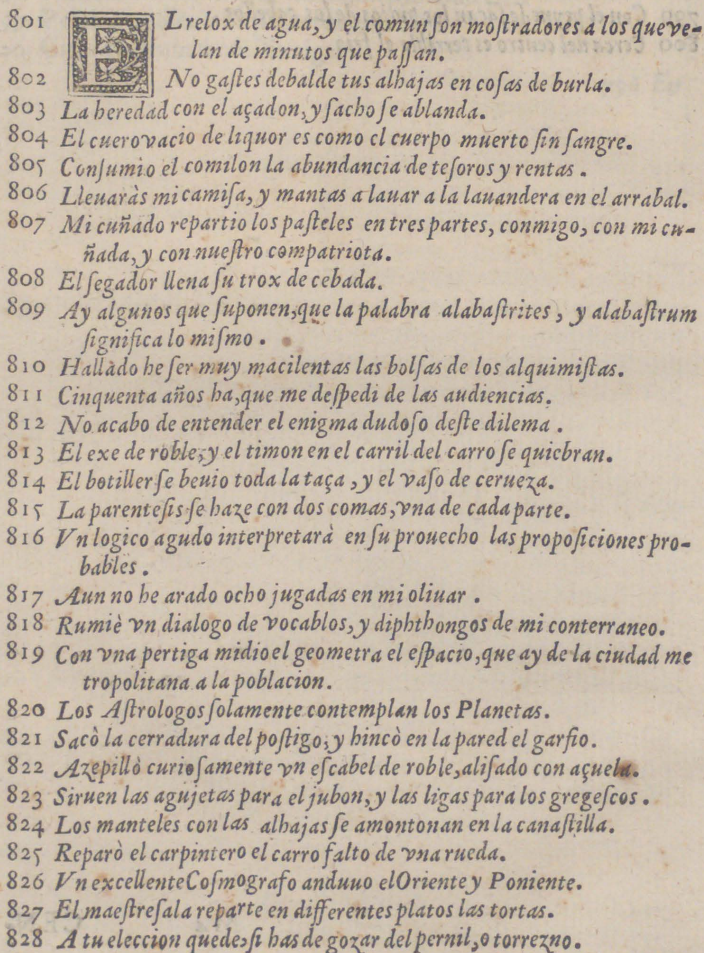 801 EL relox de agua, y el comun ſon moſtradores a los que ve-
lan de minutos que paſſan.
802 No gaſtes debalde tus alhajas en coſas de burla.
803 La heredad con el açadon, y ſacho ſe ablanda.
804 El cuero vacio de liquor es como el cuerpo muerto ſin ſangre.
805 Conſumio el comilon la abundancia de teſoros y rentas .
806 Lleuaràs mi camiſa, y mantas a lauar a la lauandera en el arrabal.
807 Mi cuñado repartio los paſteles en tres partes, conmigo, con mi cu-
ñada, y con nueſtro compatriota.
808 El ſegador llena ſu trox de cebada.
809 Ay algunos que ſuponen, que la palabra alabaſtrites , y alabaſtrum
ſignifica lo miſmo .
810 Hallàdo he ſer muy macilentas las bolſas de los alquimiſtas.
811 Cinquenta años ha, que me deſpedi de las audiencias.
812 No acabo de entender el enigma dudoſo deſte dilema .
813 El exe de roble, y el timon en el carril del carro ſe quiebran.
814 El botiller ſe beuio toda la taça , y el vaſo de cerueza.
815 La parenteſis ſe haze con dos comas, vna de cada parte.
816 Vn logico agudo interpretarà en ſu prouecho las propoſiciones pro-
bables .
817 Aun no he arado ocho jugadas en mi oliuar .
818 Rumiè vn dialogo de vocablos, y diphthongos de mi conterraneo.
819 Con vna pertiga midio el geometra el eſpacio, que ay de la ciudad me
tropolitana a la poblacion.
820 Los Aſtrologos ſolamente contemplan los Planetas.
821 Sacò la cerradura del poſtigo, y hincò en la pared el garfio.
822 Azepillò curioſamente vn eſcabel de roble, aliſado con açuela.
823 Siruen las agujetas para el jubon, y las ligas para los gregeſcos .
824 Los manteles con las alhajas ſe amontonan en la canaſtilla.
825 Reparò el carpintero el carro falto de vna rueda.
826 Vn excellente Coſmografo anduuo el Oriente y Poniente.
827 El maeſtreſala reparte en differentes platos las tortas.
828 A tu eleccion quede, ſi has de gozar del pernil, o torrezno.